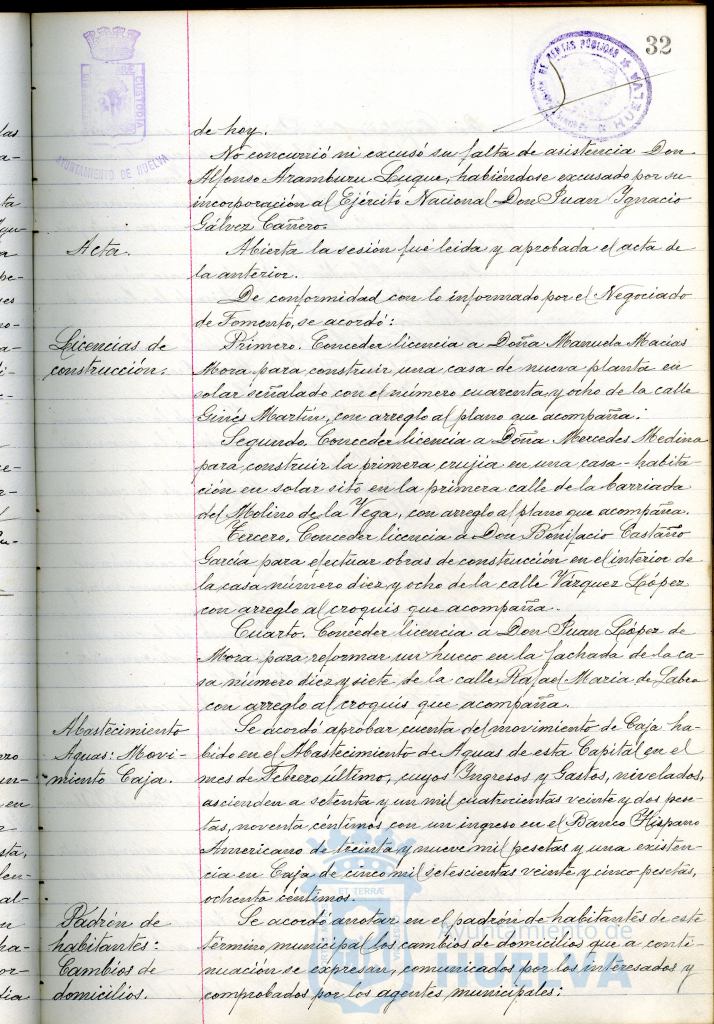 32
AYUNTAMIENTO DE HUELVA
de hoy.
No concurrió ni excusó su falta de asistencia Don
Alfonso Aramburu Luque, habiéndose excusado por su
incorporación al Ejército Nacional Don Juan Ignacio
Gálvez Cañero.
Acta.
Abierta la sesión fué leida y aprobada el acta de
la anterior.
De conformidad con lo informado por el Negociado
de Fomento, se acordó:
Licencias de
construcción:
Primero. Conceder licencia a Doña Manuela Macias
Mora para construir una casa de nueva planta en
solar señalado con el número cuarenta y ocho de la calle
Ginés Martín, con arreglo al plano que acompaña.
Segundo. Conceder licencia a Doña Mercedes Medina
para construir la primera crujia en una casa-habita-
ción en solar sito en la primera calle de la barriada
del Molino de la Vega, con arreglo al plano que acompaña.
Tercero. Conceder licencia a Don Bonifacio Castaño
García para efectuar obras de construcción en el interior de
la casa número diez y ocho de la calle Vázquez López
con arreglo al croquis que acompaña.
Cuarto. Conceder licencia a Don Juan López de
Mora para reformar un hueco en la fachada de la ca-
sa número diez y siete de la calle Rafael Maria de Labra
con arreglo al croquis que acompaña.
Abastecimiento
Aguas: Movi-
miento Caja.
Se acordó aprobar cuenta del movimiento de Caja ha-
bido en el Abastecimiento de Aguas de esta Capital en el
mes de Febrero último, cuyos Ingresos y Gastos, nivelados,
ascienden a setenta y un mil cuatrocientas veinte y dos pese-
tas, noventa céntimos con un ingreso en el Banco Hispano
Americano de treinta y nueve mil pesetas y una existen-
cia en Caja de cinco mil setescientas veinte y cinco pesetas,
ochenta céntimos.
Padrón de
habitantes:
Cambios de
domicilios.
Se acordó anotar en el padrón de habitantes de este
término municipal los cambios de domicilios que a conti-
nuación se expresan, comunicados por los interesados y
comprobados por los agentes municipales:
Ayuntamiento de
HUELVA